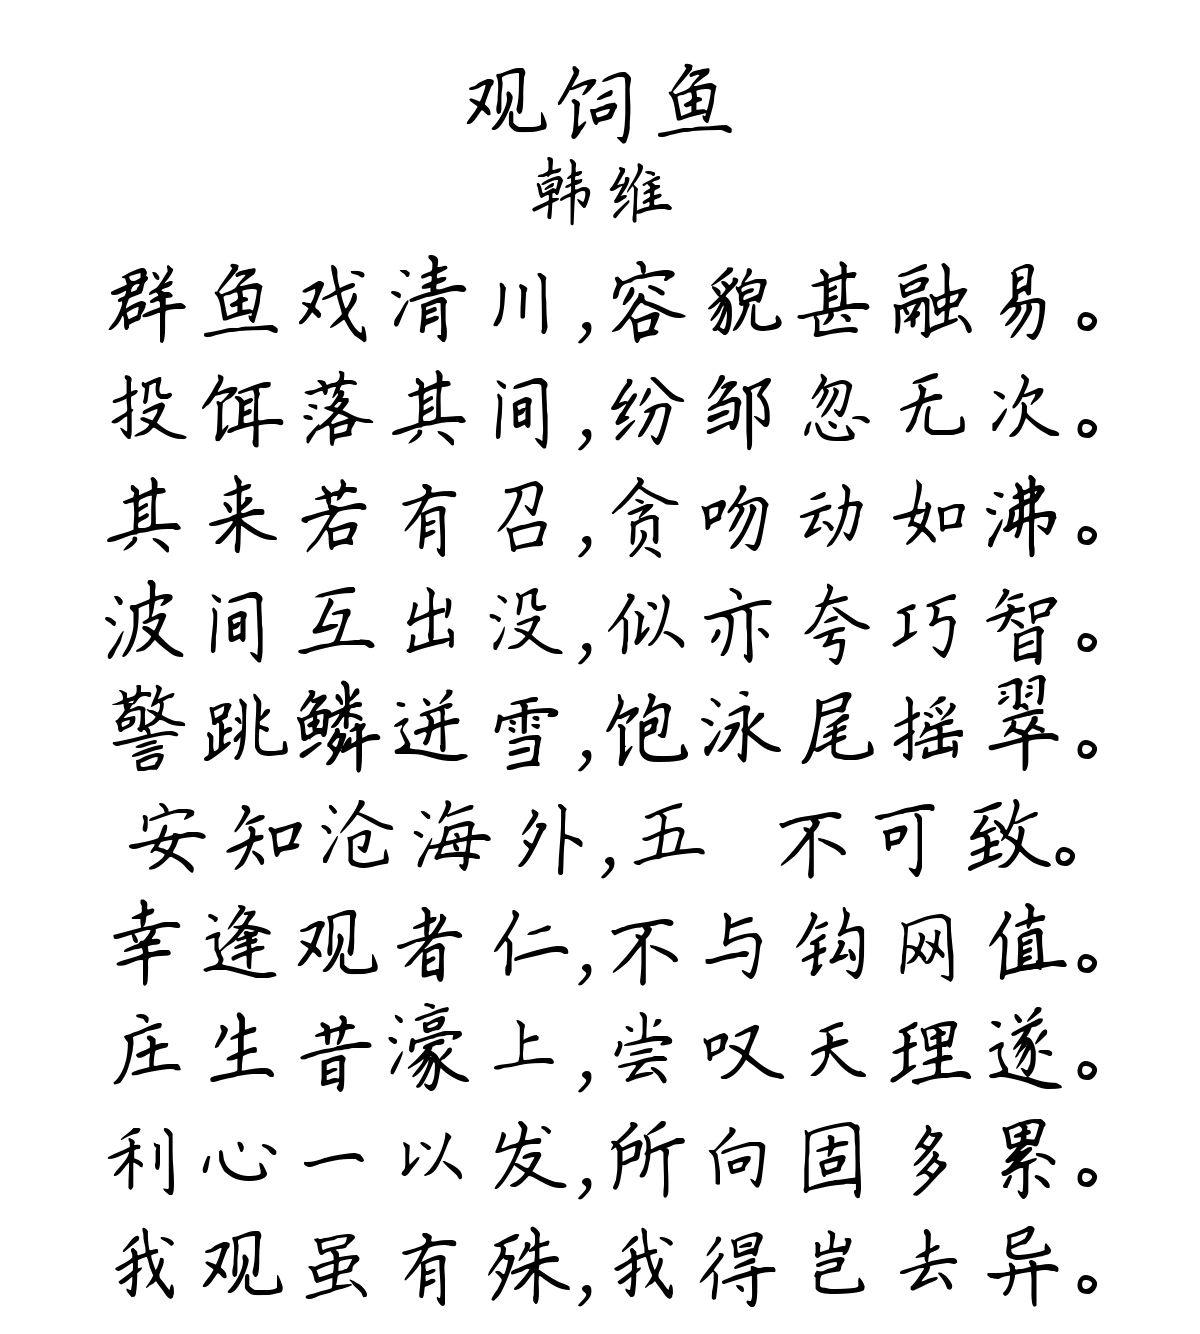 观饲鱼
韩维
群鱼戏清川,容貌甚融易。
投饵落其间,纷邹忽无次。
其来若有召,贪吻动如沸。
波间互出没,似亦夸巧智。
警跳鳞迸雪,饱泳尾摇翠。
安知沧海外,五 不可致。
幸逢观者仁,不与钩网值。
庄生昔濠上,尝叹天理遂。
利心一以发,所向固多累。
我观虽有殊,我得岂去异。